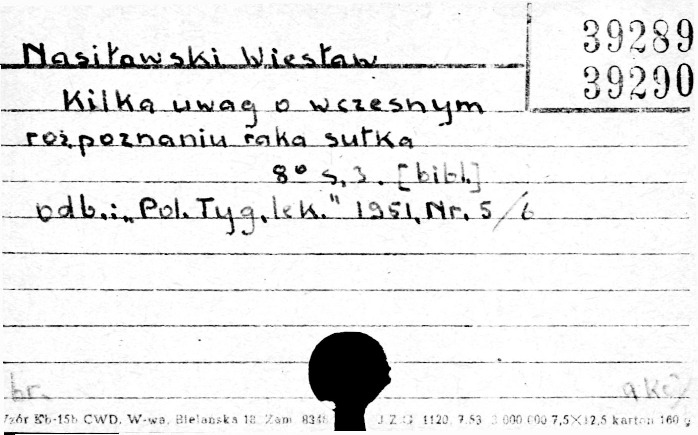 39289
Nasiławski Wiesław
39290
Kilka uwag o wczesnym
rozpoznaniu raka sutka
8° s. 3. [bibl.]
odb.: „Pol. Tyg. lek." 1951, Nr. 5/6
br. akc
Wzór Bb-15b CWD, W-wa, Bielańska 18. Zam. 8348 J.Z.G. 1120, 7.53 3 000 000 7,5×12,5 karton 160 g